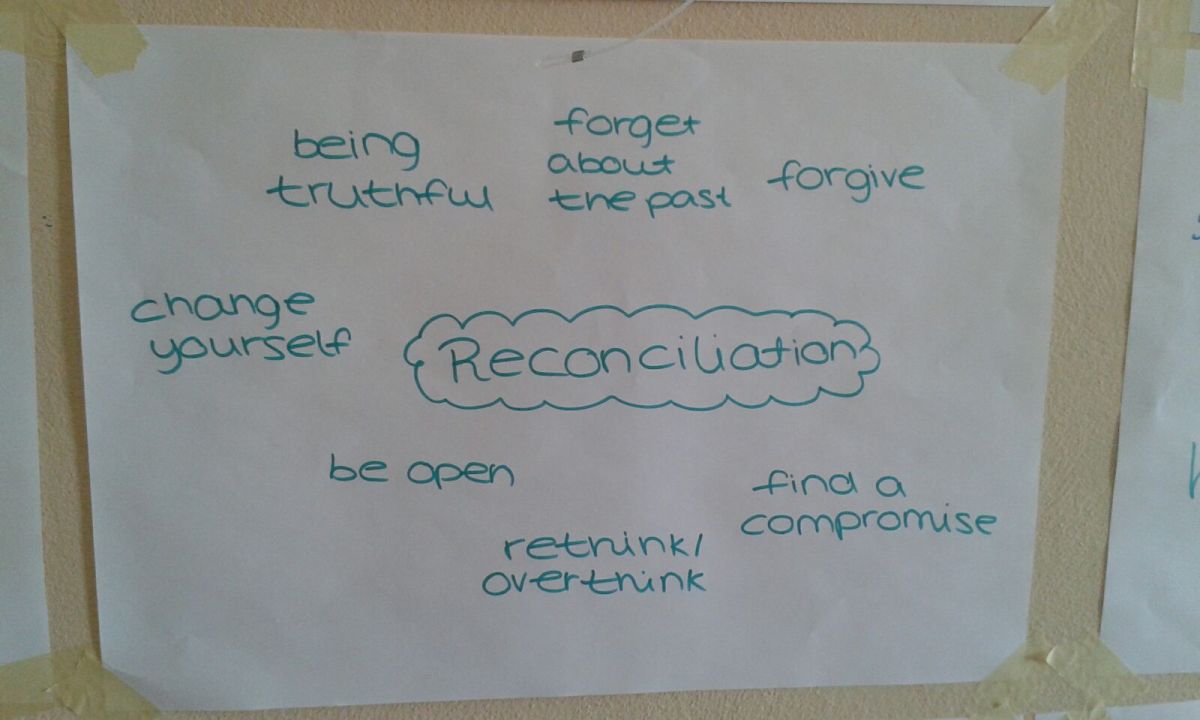 being
truthful
forget
about
the past
forgive
change
yourself
Reconciliation
be open
find a
compromise
rethink/
overthink